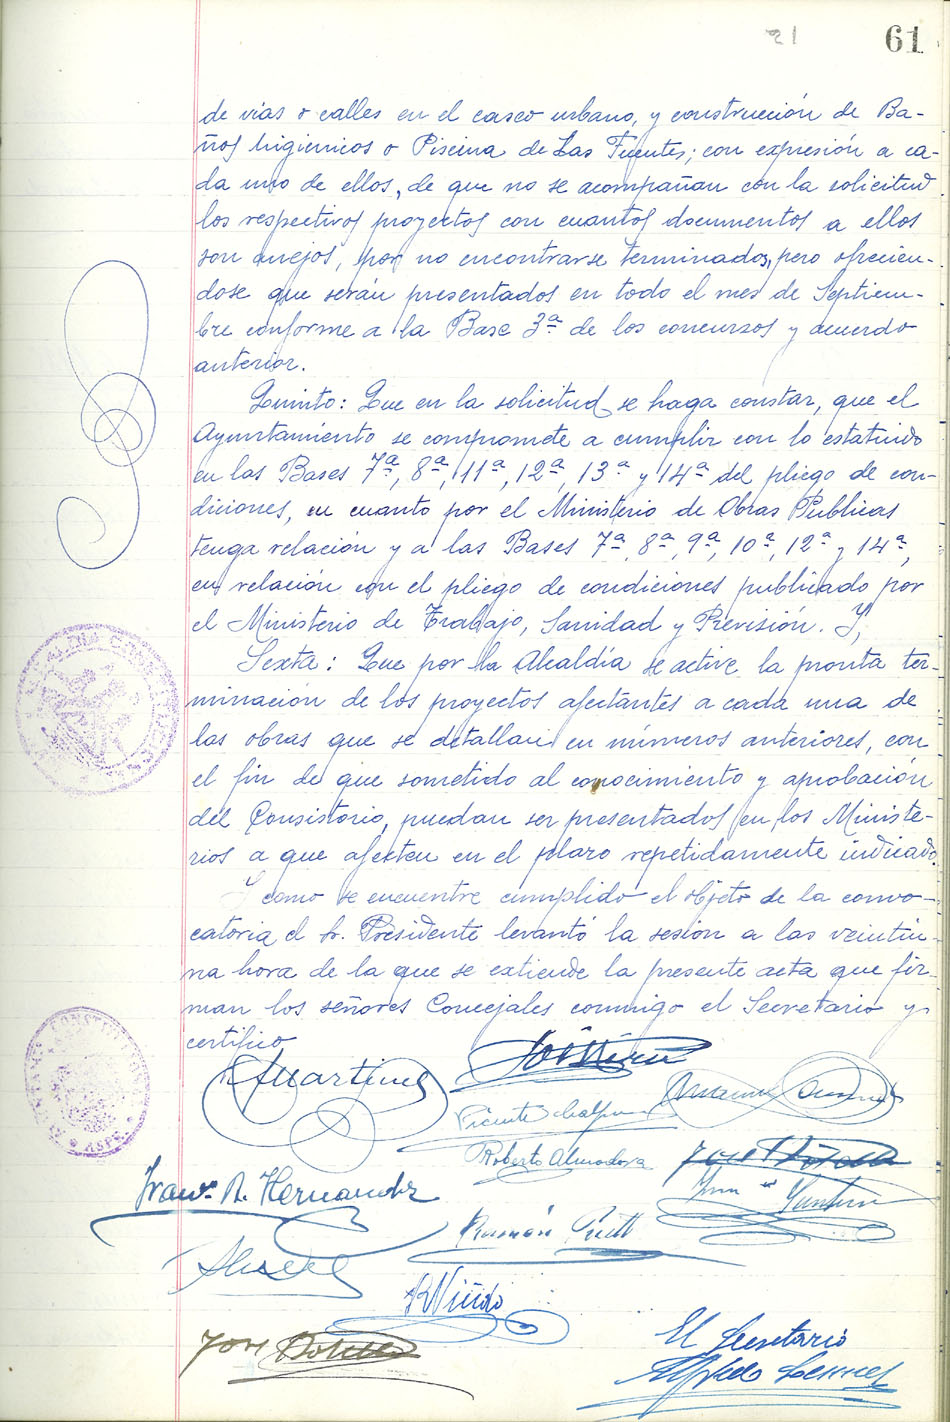 21
61
de vías o calles en el casco urbano, y construcción de Ba-
ños higienicos o Piscina de Las Fuentes; con expresión a ca-
da uno de ellos, de que no se acompañan con la solicitud
los respectivos proyectos con cuantos documentos a ellos
son anejos, por no encontrarse terminados, pero ofrecien-
dose que serán presentados en todo el mes de Septiem-
bre conforme a la Base 3ª de los concursos y acuerdo
anterior.
Quinto: Que en la solicitud se haga constar, que el
Ayuntamiento se compromete a cumplir con lo estatuido
en las Bases 7ª, 8ª, 11ª, 12ª, 13ª y 14ª del pliego de con-
diciones, en cuanto por el Ministerio de Obras Públicas
tenga relación y a las Bases 7ª, 8ª, 9ª, 10ª, 12ª y 14ª,
en relación con el pliego de condiciones publicado por
el Ministerio de Trabajo, Sanidad y Previsión. Y,
Sexta: Que por la Alcaldía se active la pronta ter-
minación de los proyectos afectantes a cada una de
las obras que se detallan en números anteriores, con
el fin de que sometido al conocimiento y aprobación
del Consistorio, puedan ser presentados en los Ministe-
rios a que afecten en el plazo repetidamente indicado.
Y como se encuentre cumplido el objeto de la convo-
catoria el Sr. Presidente levantó la sesión a las veintiu-
na hora de la que se extiende la presente acta que fir-
man los señores Concejales conmigo el Secretario y
certifico
Martinez
Vicente
Roberto Almodova
José
Franco. R. Hernandez
Ramón
José
El Secretario
Alfredo